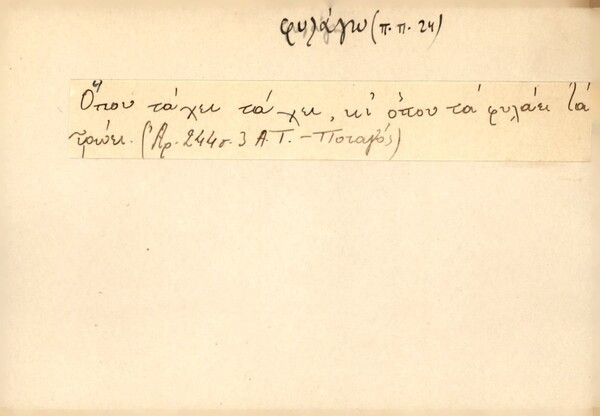 φυλάγω (π.π. 24)
Ὅπου τά χει τά χει, κι ὅπου τά φυλάει τά
τρώει. (Ἀρ. 244 σ. 3 Α.Τ. - Ποταμός)